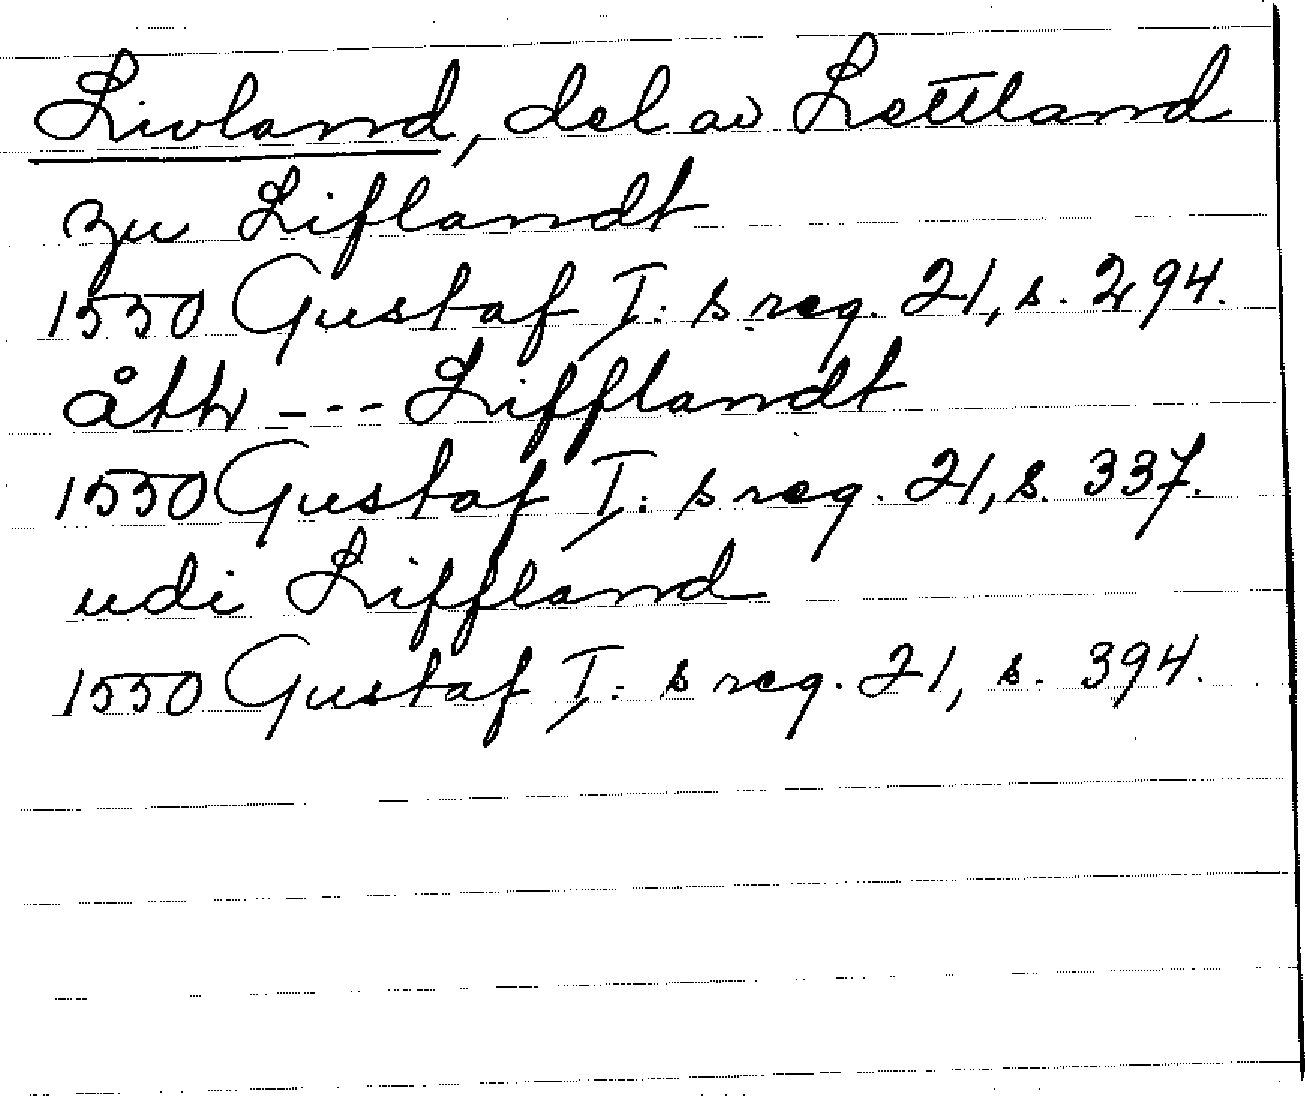 Livland, del av Lettland
zu Liflandt
1550 Gustaf I: s reg. 21, s. 294.
åth --- Lifflandt
1550 Gustaf I: s reg. 21, s. 337.
udi Liffland
1550 Gustaf I: s reg. 21, s. 394.